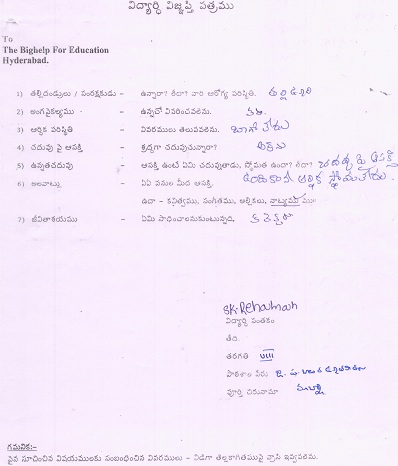 విద్యార్థి విజ్ఞప్తి పత్రము
To
The Bighelp For Education
Hyderabad.
1) తల్లిదండ్రులు / సంరక్షకుడు - ఉన్నారా? లేదా? వారి ఆరోగ్య పరిస్థితి. తల్లి ఉన్నది
2) అంగవైకల్యము - ఉన్నచో వివరించవలెను.
3) ఆర్థిక పరిస్థితి - వివరములు తెలుపవలెను. బాగో లేదు
4) చదువు పై ఆసక్తి - శ్రద్ధగా చదువుచున్నారా? అవును
5) ఉన్నతచదువు - ఆసక్తి ఉంటే ఏమి చదువుతాడు, స్తోమత ఉందా? లేదా?
6) అలవాట్లు - ఏఏ పనుల మీద ఆసక్తి.
ఉదా - కవిత్వము, సంగీతము, అల్లికలు, నాట్యము
7) జీవితాశయము - ఏమి సాధించాలనుకుంటున్నది,
SK. Rehaman
విద్యార్థి సంతకం
తేది
తరగతి VIII
పాఠశాల పేరు
పూర్తి చిరునామా
గమనిక:-
పైన సూచించిన విషయములకు సంబంధించిన వివరములు - విడిగా తెల్లకాగితముపై వ్రాసి ఇవ్వవలెను.